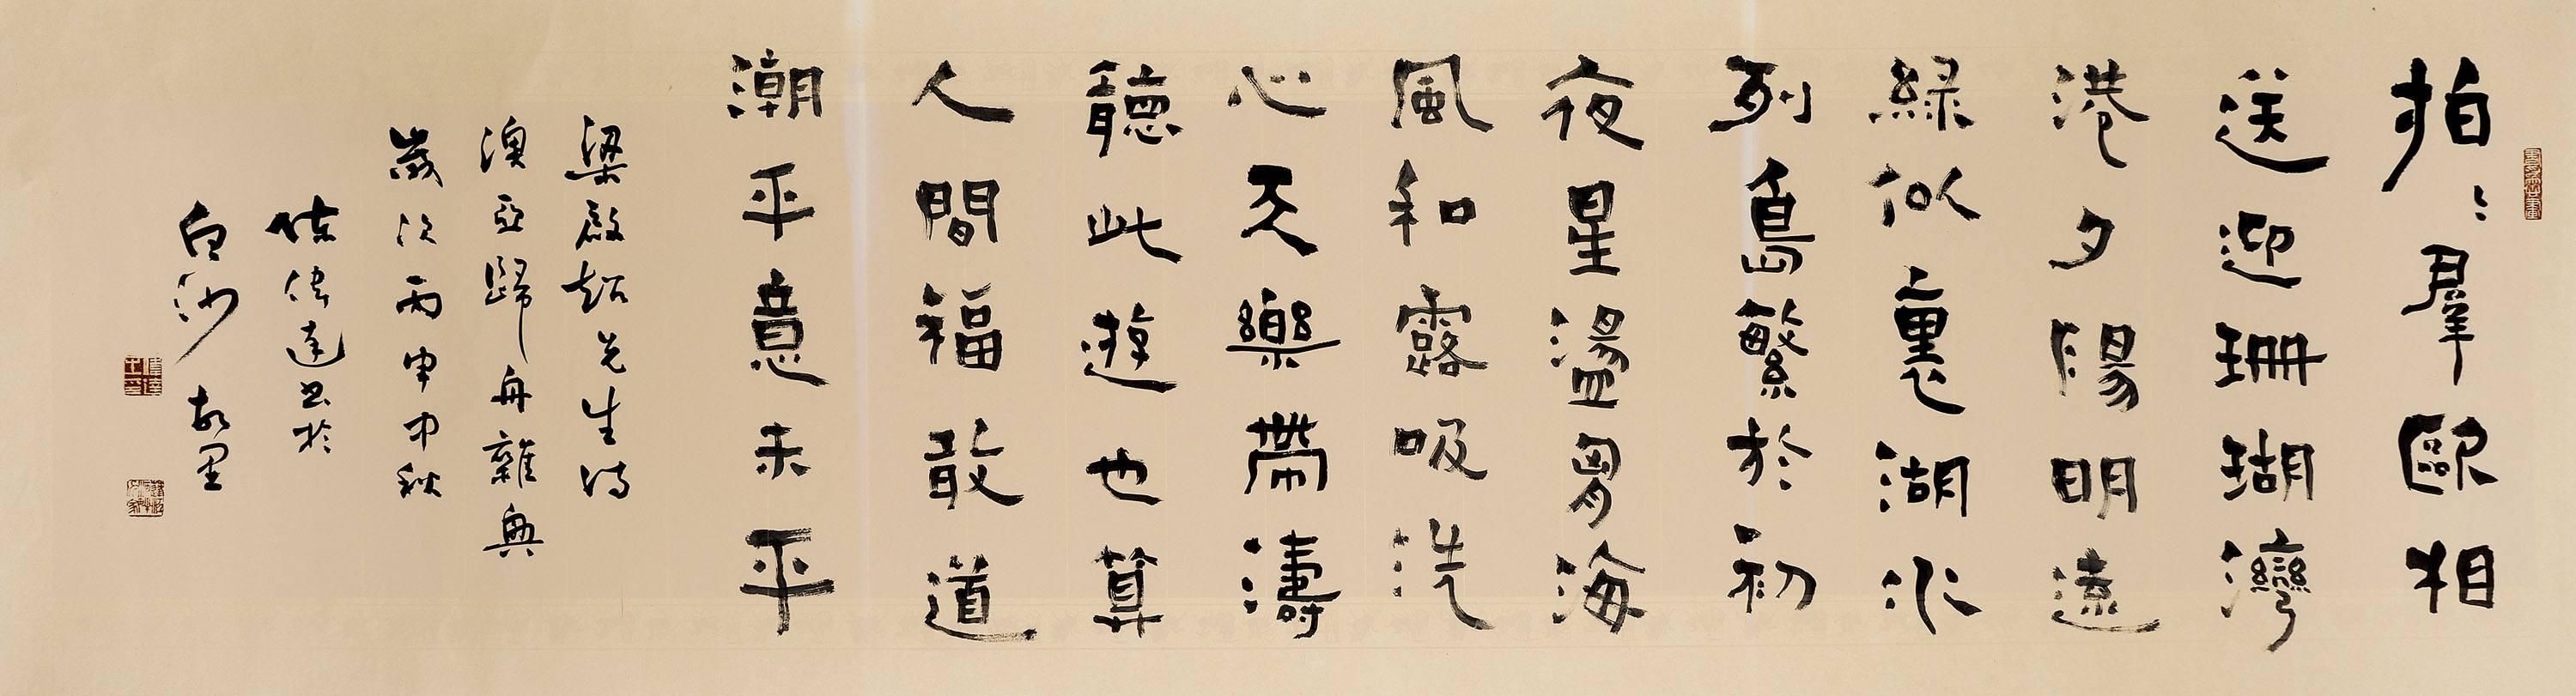 拍〻羣歐相
送迎珊瑚灣
港夕陽明遠
綠似裏湖水
列島繁於初
夜星盪胷海
風和露吸洗
心天樂帶濤
聽此遊也算
人間福敢道
潮平意未平
梁啟超先生詩
澳亞歸舟雜興
歲次丙申中秋
陳偉達書於
白沙故里